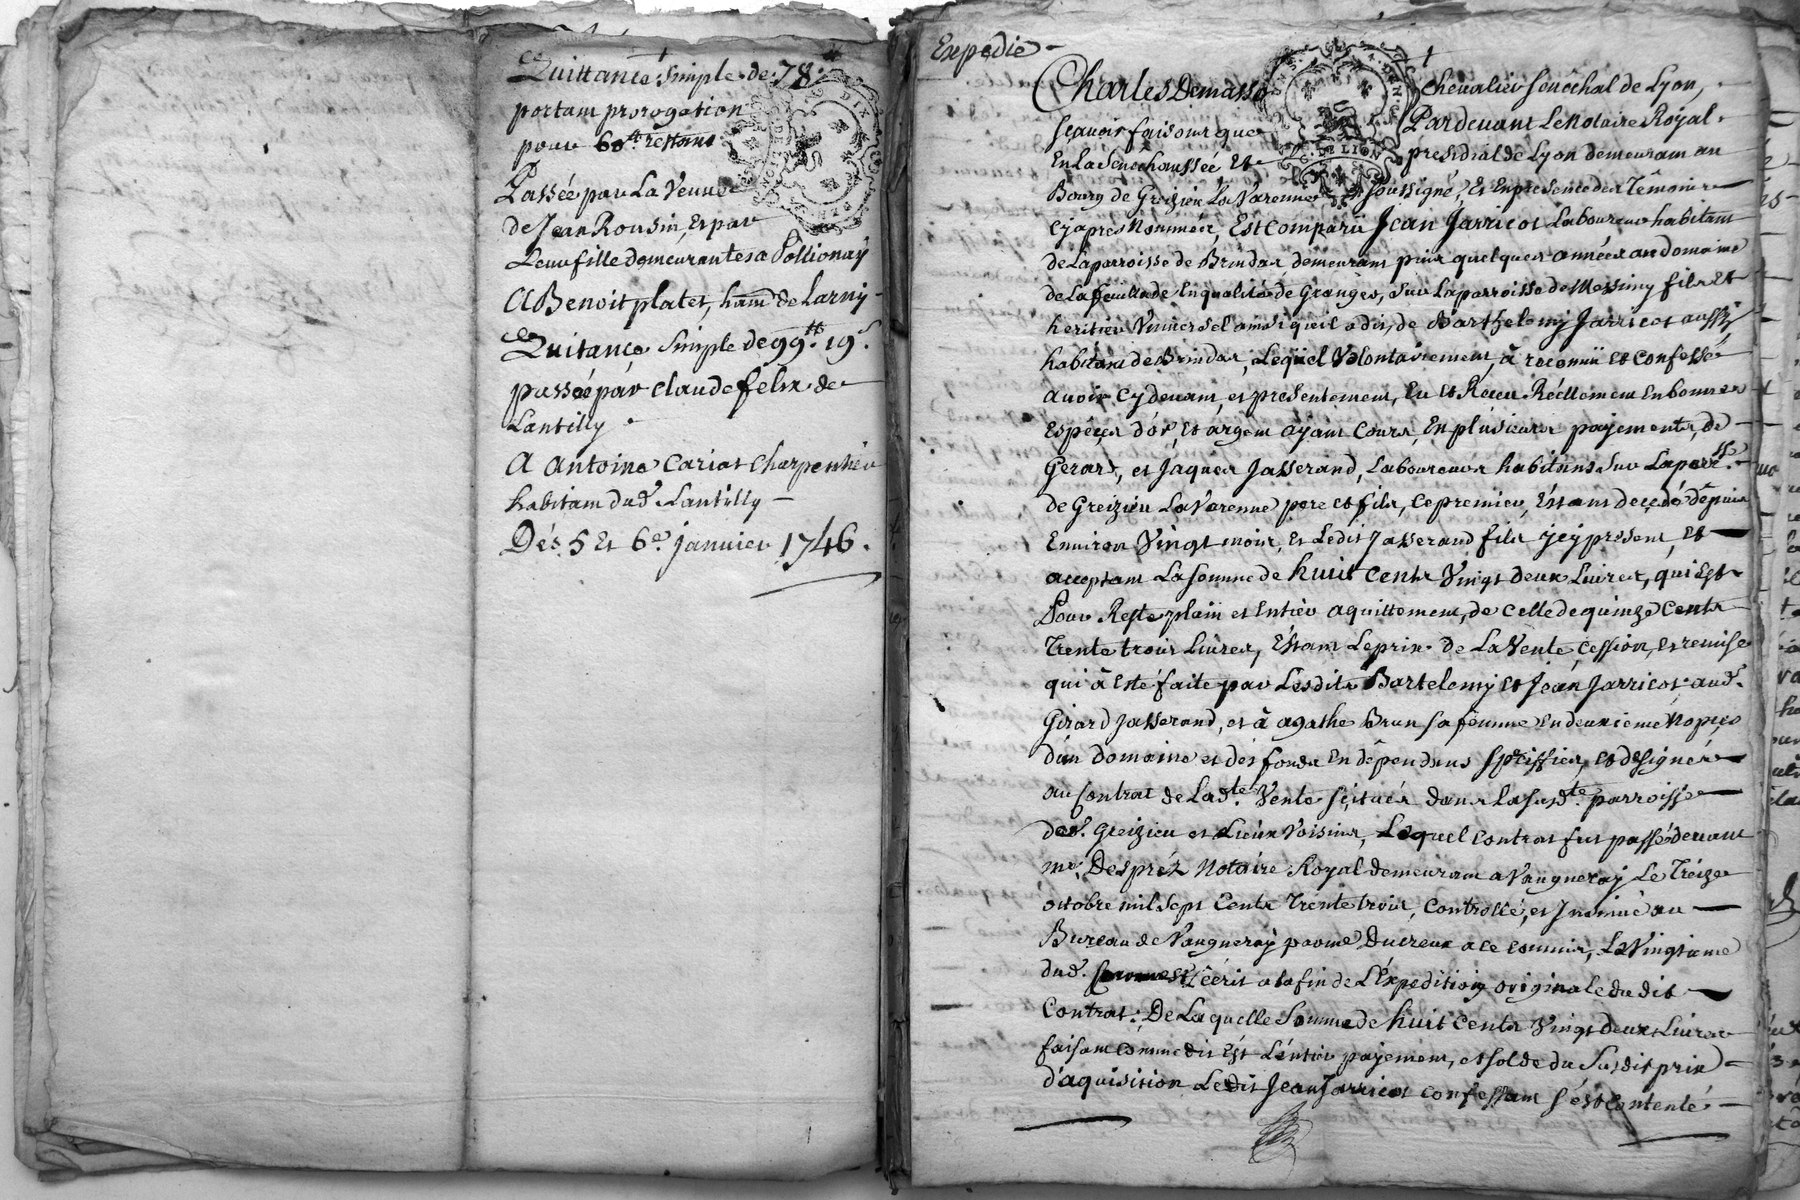 Quittance simple de 78
portant prorogation
pour 60tt restant
Passée par La Veuve
de Jean Rousin, Et par
Leur fille demeurantes a Pollionay
A Benoit platet, hant de Larny
Quitance simple de 99tt 19s
passée par claude felix de
Lantilly
A antoine Cariot Charpentier
habitant dud. Lantilly
Dés 5 Et 6e janvier 1746.
Expedié
Charles Demasso Chevalier Senéchal de Lyon,
sçavoir faisons que Pardevant Le Notaire Royal
En La Senéchaussée et presidial de Lyon demeurant au
Bourg de Greizieu La Varenne soussigné, Et En presence des Témoins
Cy apres Nommés, Est Comparû Jean Jarricot Laboureur habitant
de La parroisse de Brindas, demeurant puis quelques années au domaine
de La feuillade En qualité de Granger, sur La parroisse de Messimy fils et
heritier Vniversel ainsi qu'il a dit, de Barthelemy Jarricot aussÿ
habitant de Brindas, Leqüel Volontairement, à reconnü et Confessé
avoir Cy devant, et presentement, Eu et Receu Réellement En bonnes
Espéces d'or, et argent ayant Cours, En plusieurs payements, de
Gerard, et Jaques Jasserand, Laboureurs habitans sur La parrsse
de Greizieu La Varenne pere et fils, Ce premier, Estant decedé depuis
Environ Vingt mois, Et Ledit Jasserand fils icy present, et
acceptant La Somme de huit Cents Vingt deux Livres, qui Est
Pour Reste plain et Entier aquittement, de Celle de quinze Cents
Trente trois Livres, Estant Le prix de La Vente, Cession, et remise
qui à Esté faite par Lesdits Bartelemy et Jean Jarricot aud.
Girard Jasserand, et à agathe Brun sa femme En deuxieme Nopces
d'un Domaine et des fonds En dépendans Speciffiés, et designés
au Contrat de Ladte Vente scitués dans La susdte parroisse
de Greizieu et Lieux Voisins, Lequel Contrat fut passé devant
me Despréz Notaire Royal demeurant a Vaugneray Le Treize
octobre mil sept Cents Trente trois, Controllé, et Insinué au
Bureau de Vaugneray par me Ducreux a ce Commis, Le Vingtieme
dud. Ecrit a la fin de L'Expedition originale du dit
Contrat; De Laquelle Somme de huit Cents Vingt deux Livres
faisant Comme dit Est L'entier payement, et solde du Susdit prix
d'aquisition Ledit Jean Jarricot Confessant s'est Contenté